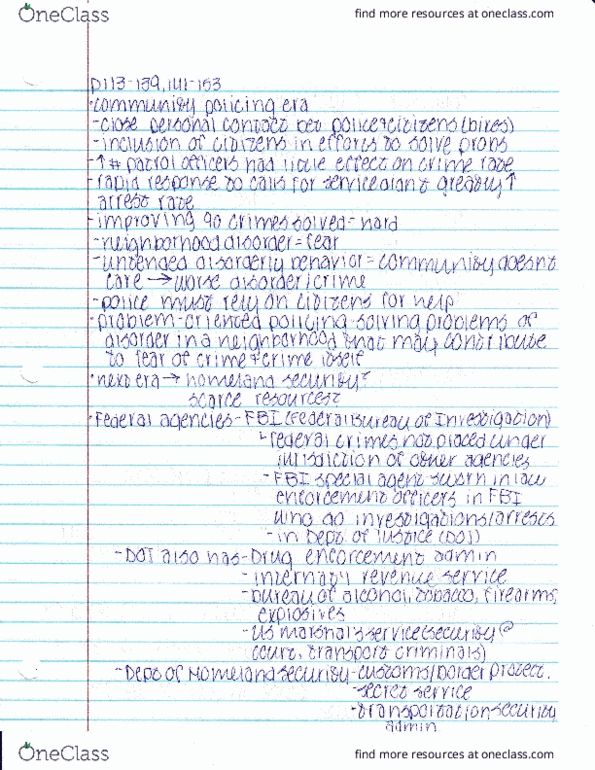 OneClass
find more resources at oneclass.com
p113-139, 141-153
·community policing era
-close personal contact bet police+citizens (bikes)
-inclusion of citizens in efforts to solve probs
-↑# patrol officers had little effect on crime rate
-rapid response to calls for service didnt greatly ↑
arrest rate
-improving % crimes solved = hard
-neighborhood disorder = fear
-untended disorderly behavior = community doesnt
care → worse disorder/crime
-police must rely on citizens for help
-problem-oriented policing-solving problems of
disorder in a neighborhood that may contribute
to fear of crime + crime itself
·next era → homeland security?
scarce resources?
·Federal agencies-FBI (Federal Bureau of Investigation)
federal crimes not placed under
jurisdiction of other agencies
-FBI special agent sworn in law
enforcement officers in FBI
who do investigations/arrests
-in Dept of Justice (DOJ)
-DOJ also has-Drug enforcement admin
-internal revenue service
-bureau of alcohol, tobacco, firearms,
explosives
-US marshal's service (security @
court, transport criminals)
-Dept of Homeland security-customs/border protect.
-secret service
-transportation security
admin
OneClass
find more resources at oneclass.com